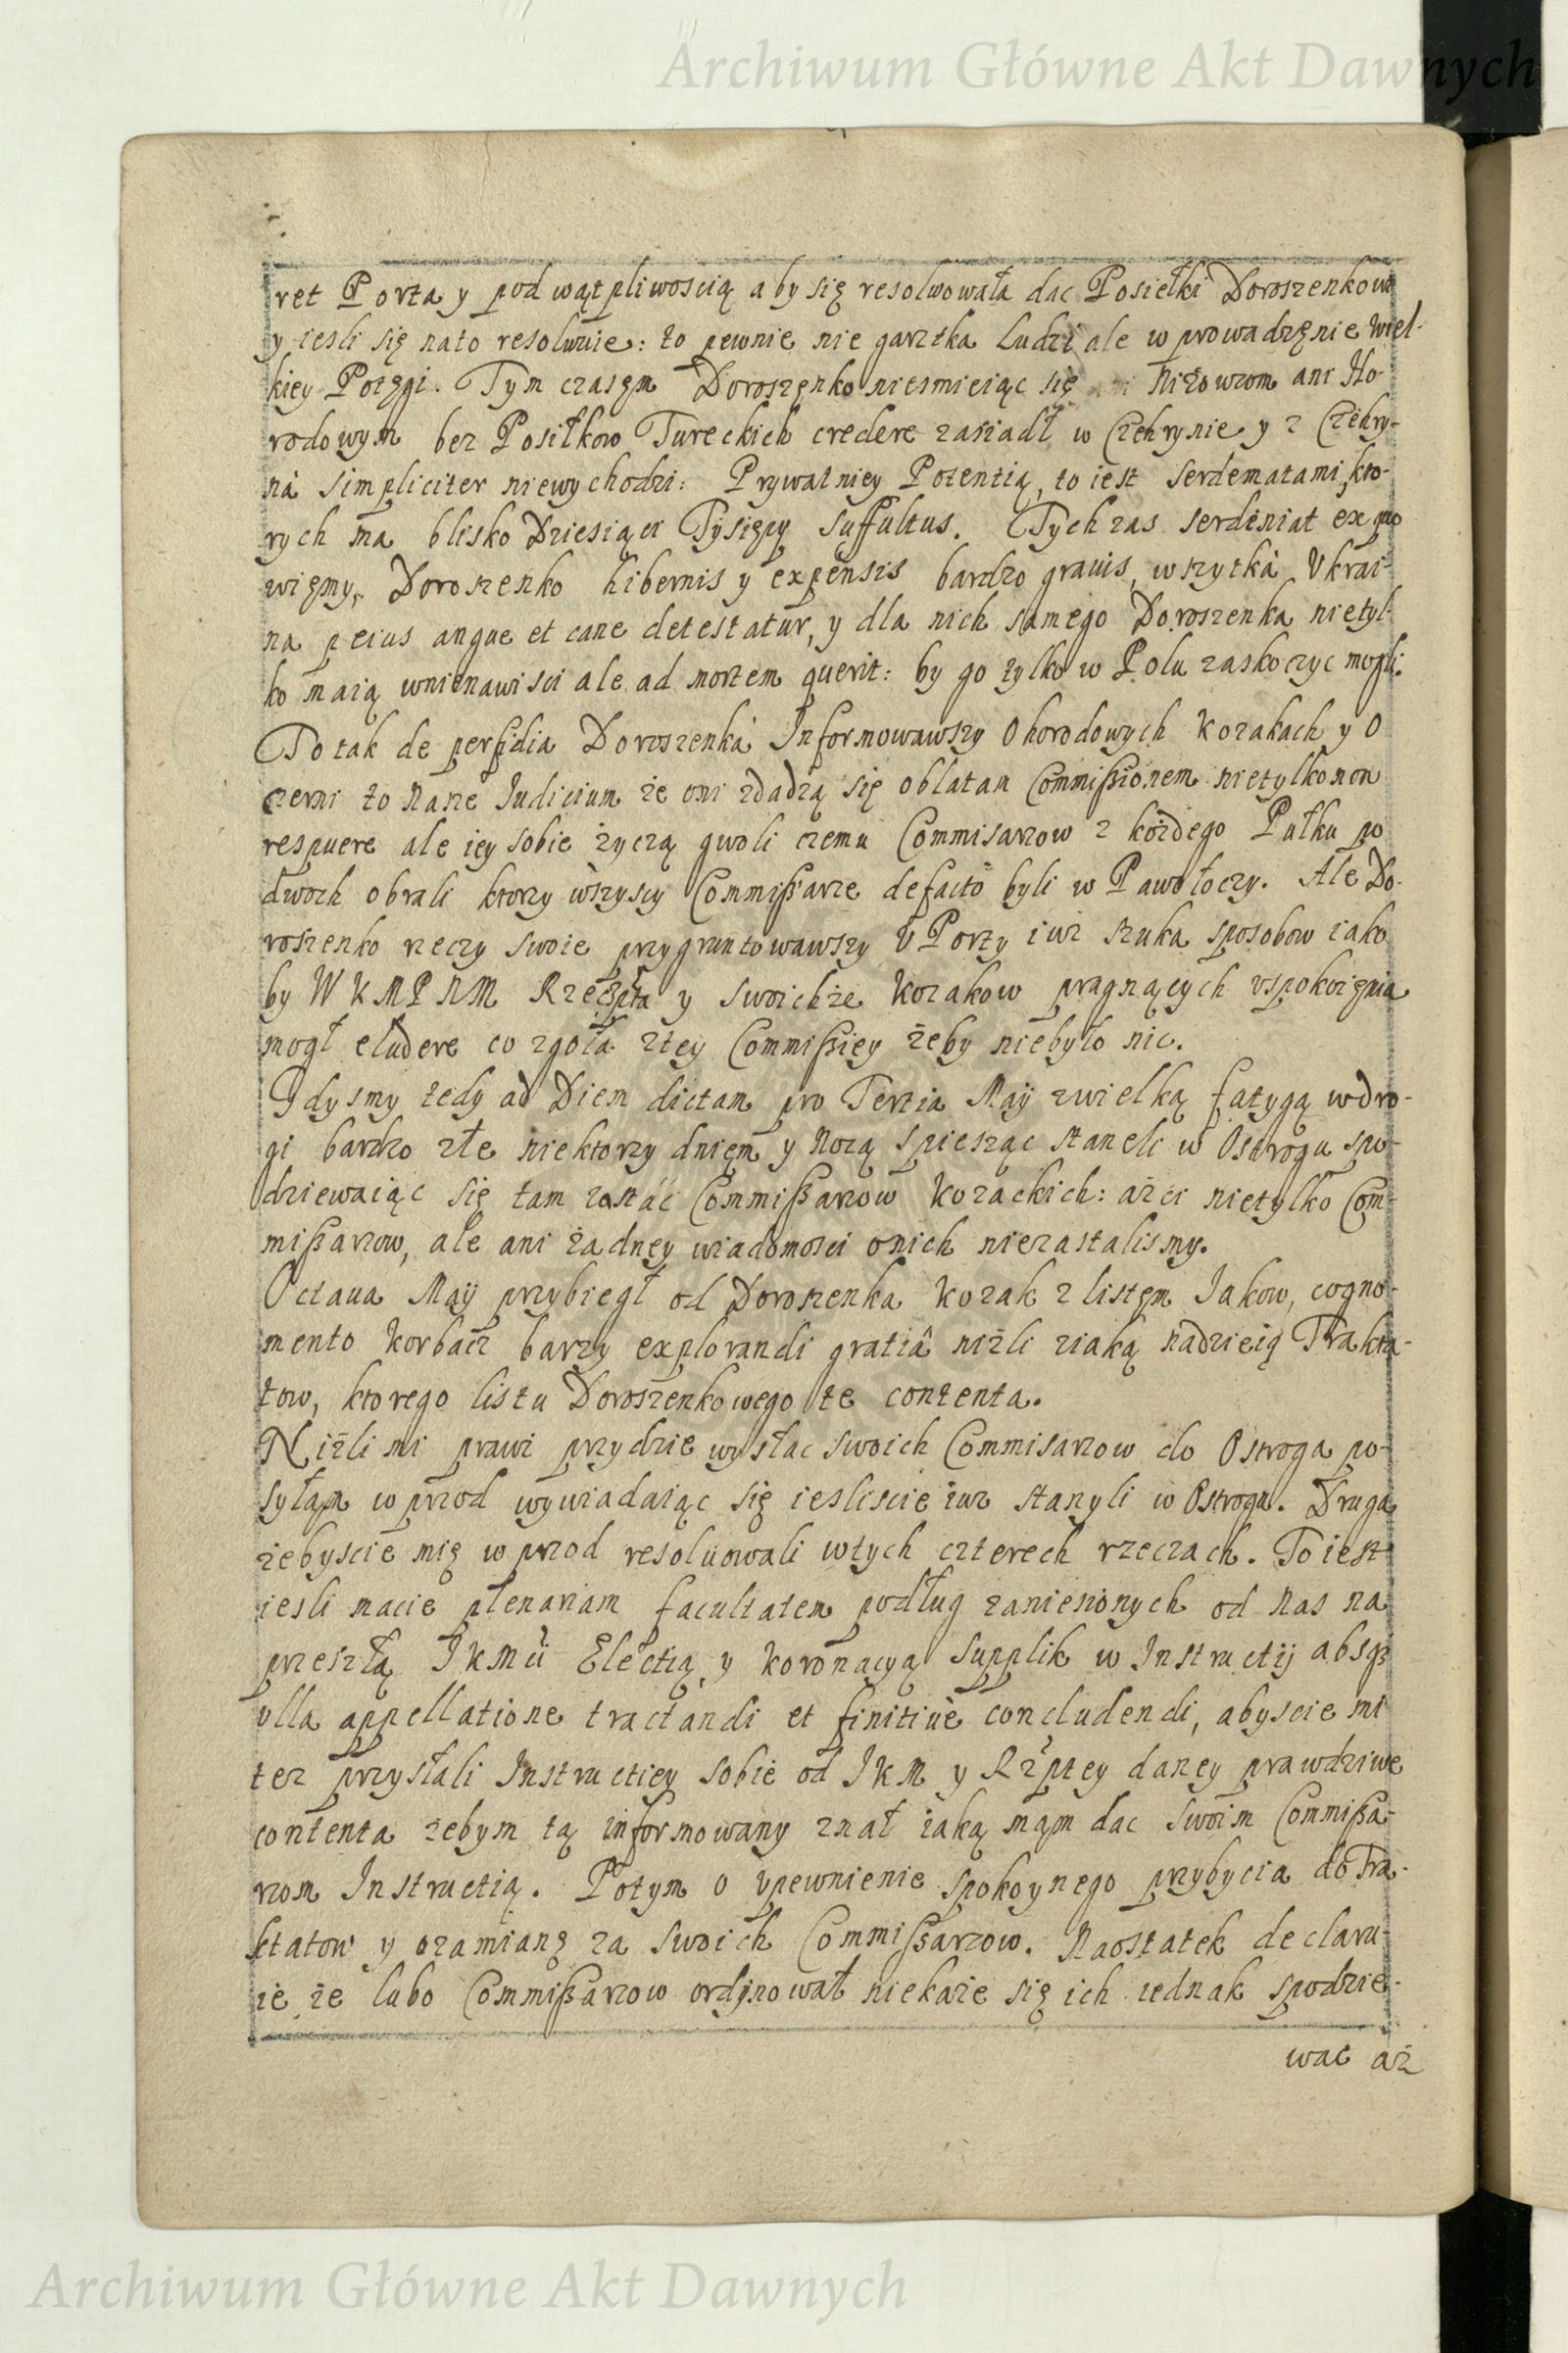 Archiwum Główne Akt Dawnych
ret Porta y pod wątpliwoscią aby się resolwowała dac Posiełki Doroszenkowi
y iesli się nato resolwuie: to pewnie nie garztka Ludzi ale w prowadzęnie wiel-
kiey Potęgi. Tym czasęm Doroszęnko niesmieiąc się ani Niżowzom ani Ho-
rodowym bez Posiłkow Tureckich credere zasiadł w Czehrynie y z Czehry-
na simpliciter niewychodzi: Prywatniey Potentią, to iest serdematami, kto-
rych ma blisko Dziesiąci Tysięcy suffultus. Tych zas serdeniat ex quo
więmy, Doroszenko hibernis y expensis bardzo grauis, wszytka Vkrai-
na peius angue et cane detestatur, y dla nich samego Doroszenka nietyl-
ko maią wnienawisci ale ad mortem querit: by go tylko w Polu zaskoczyc mogli.
To tak de perfidia Doroszenka Informowawszy O horodowych Kozakach y O
czerni to Nasze Iudicium że oni zdadzą się oblatam Commissionem nietylko non
respuere ale iey sobie życzą gwoli czemu Commisarzow z każdego Pułku po
dwoch obrali ktorzy wszyscy Commissarze defacto byli w Pawołoczy. Ale Do-
roszenko rzeczy swoie przygruntowawszy V Porty iuz szuka sposobow iako
by W K M P N M Rzeczpta y swoichże Kozakow pragnących vspokoięnia
mogł eludere co zgoła ztey Commissiey żeby niebyło nic.
Idysmy tedy ad Diem dictam pro Tertia Maij zwielką fatygą wdro-
gi bardzo złe niektorzy dnięm y Nocą spiesząc staneli w Ostrogu spo-
dziewaiąc się tam zastać Commissarzow Kozackich: ażci nietylko Com-
missarzow, ale ani żadney wiadomosci onich niezastalismy.
Octaua Maij przybiegł od Doroszenka Kozak z listęm Iakow, cogno-
mento Korbacz barzy explorandi gratiâ niżli ziaką nadzieią Trakta-
tow, ktorego listu Doroszenkowego te contenta.
Niżli mi prawi przydzie wysłac swoich Commisarzow do Ostroga po-
syłąm wprzod wywiadaiąc się iesliscie iuz stanyli w Ostrogu. Druga
żebyscie mię wprzod resoluowali wtych czterech rzeczach. To iest
iesli macie plenariam facultatem podług zaniesionych od Nas na
przeszłą I K Mci Electią, y Koronacyą Supplik w Instructij absque
vlla appellatione tractandi et finitiuè concludendi, abyscie mi
tez przysłali Instructiey sobie od I K M y Rzptey daney prawdziwe
contenta zebym tą informowany znał iaką mąm dac swoim Commissa-
rzom Instructią. Potym o vpewnienie spokoynego przybycia do Tra-
ktatow y ozamianę za swoich Commissarzow. Naostatek declaru-
ie że lubo Commissarzow ordynował niekaże się ich iednak spodzie-
wac aż
Archiwum Główne Akt Dawnych